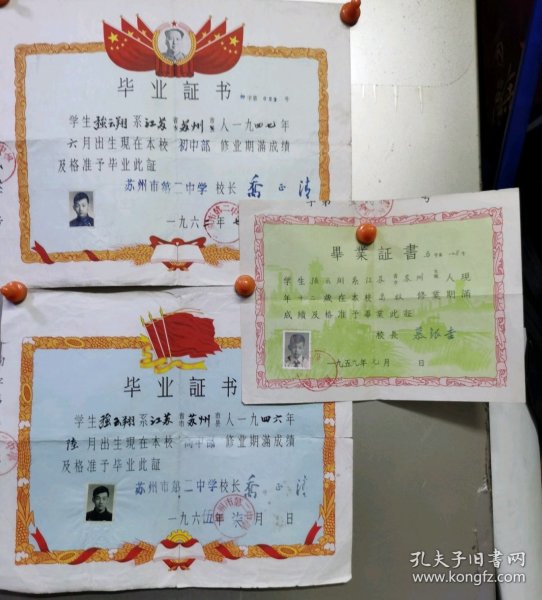 毕业証书
学生 強云翔 系江苏省苏州市人一九四七年
六月出生现在本校 初中部 修业期滿成绩
及格准予毕业此証
苏州市第二中学 校长 喬
一九六二年七
畢業証書
学生 系江苏 苏州 人现
年十二歲在本校 修業期滿
成绩及格准予畢業此証
校長
一九五九年 月 日
毕业証书
学生 強云翔 系江苏省苏州市人一九四六年
陸月出生现在本校 高中部 修业期滿成绩
及格准予毕业此証
苏州市第二中学校长 喬
一九六伍年 柒月 日
孔夫子旧书网
www.kongfz.com